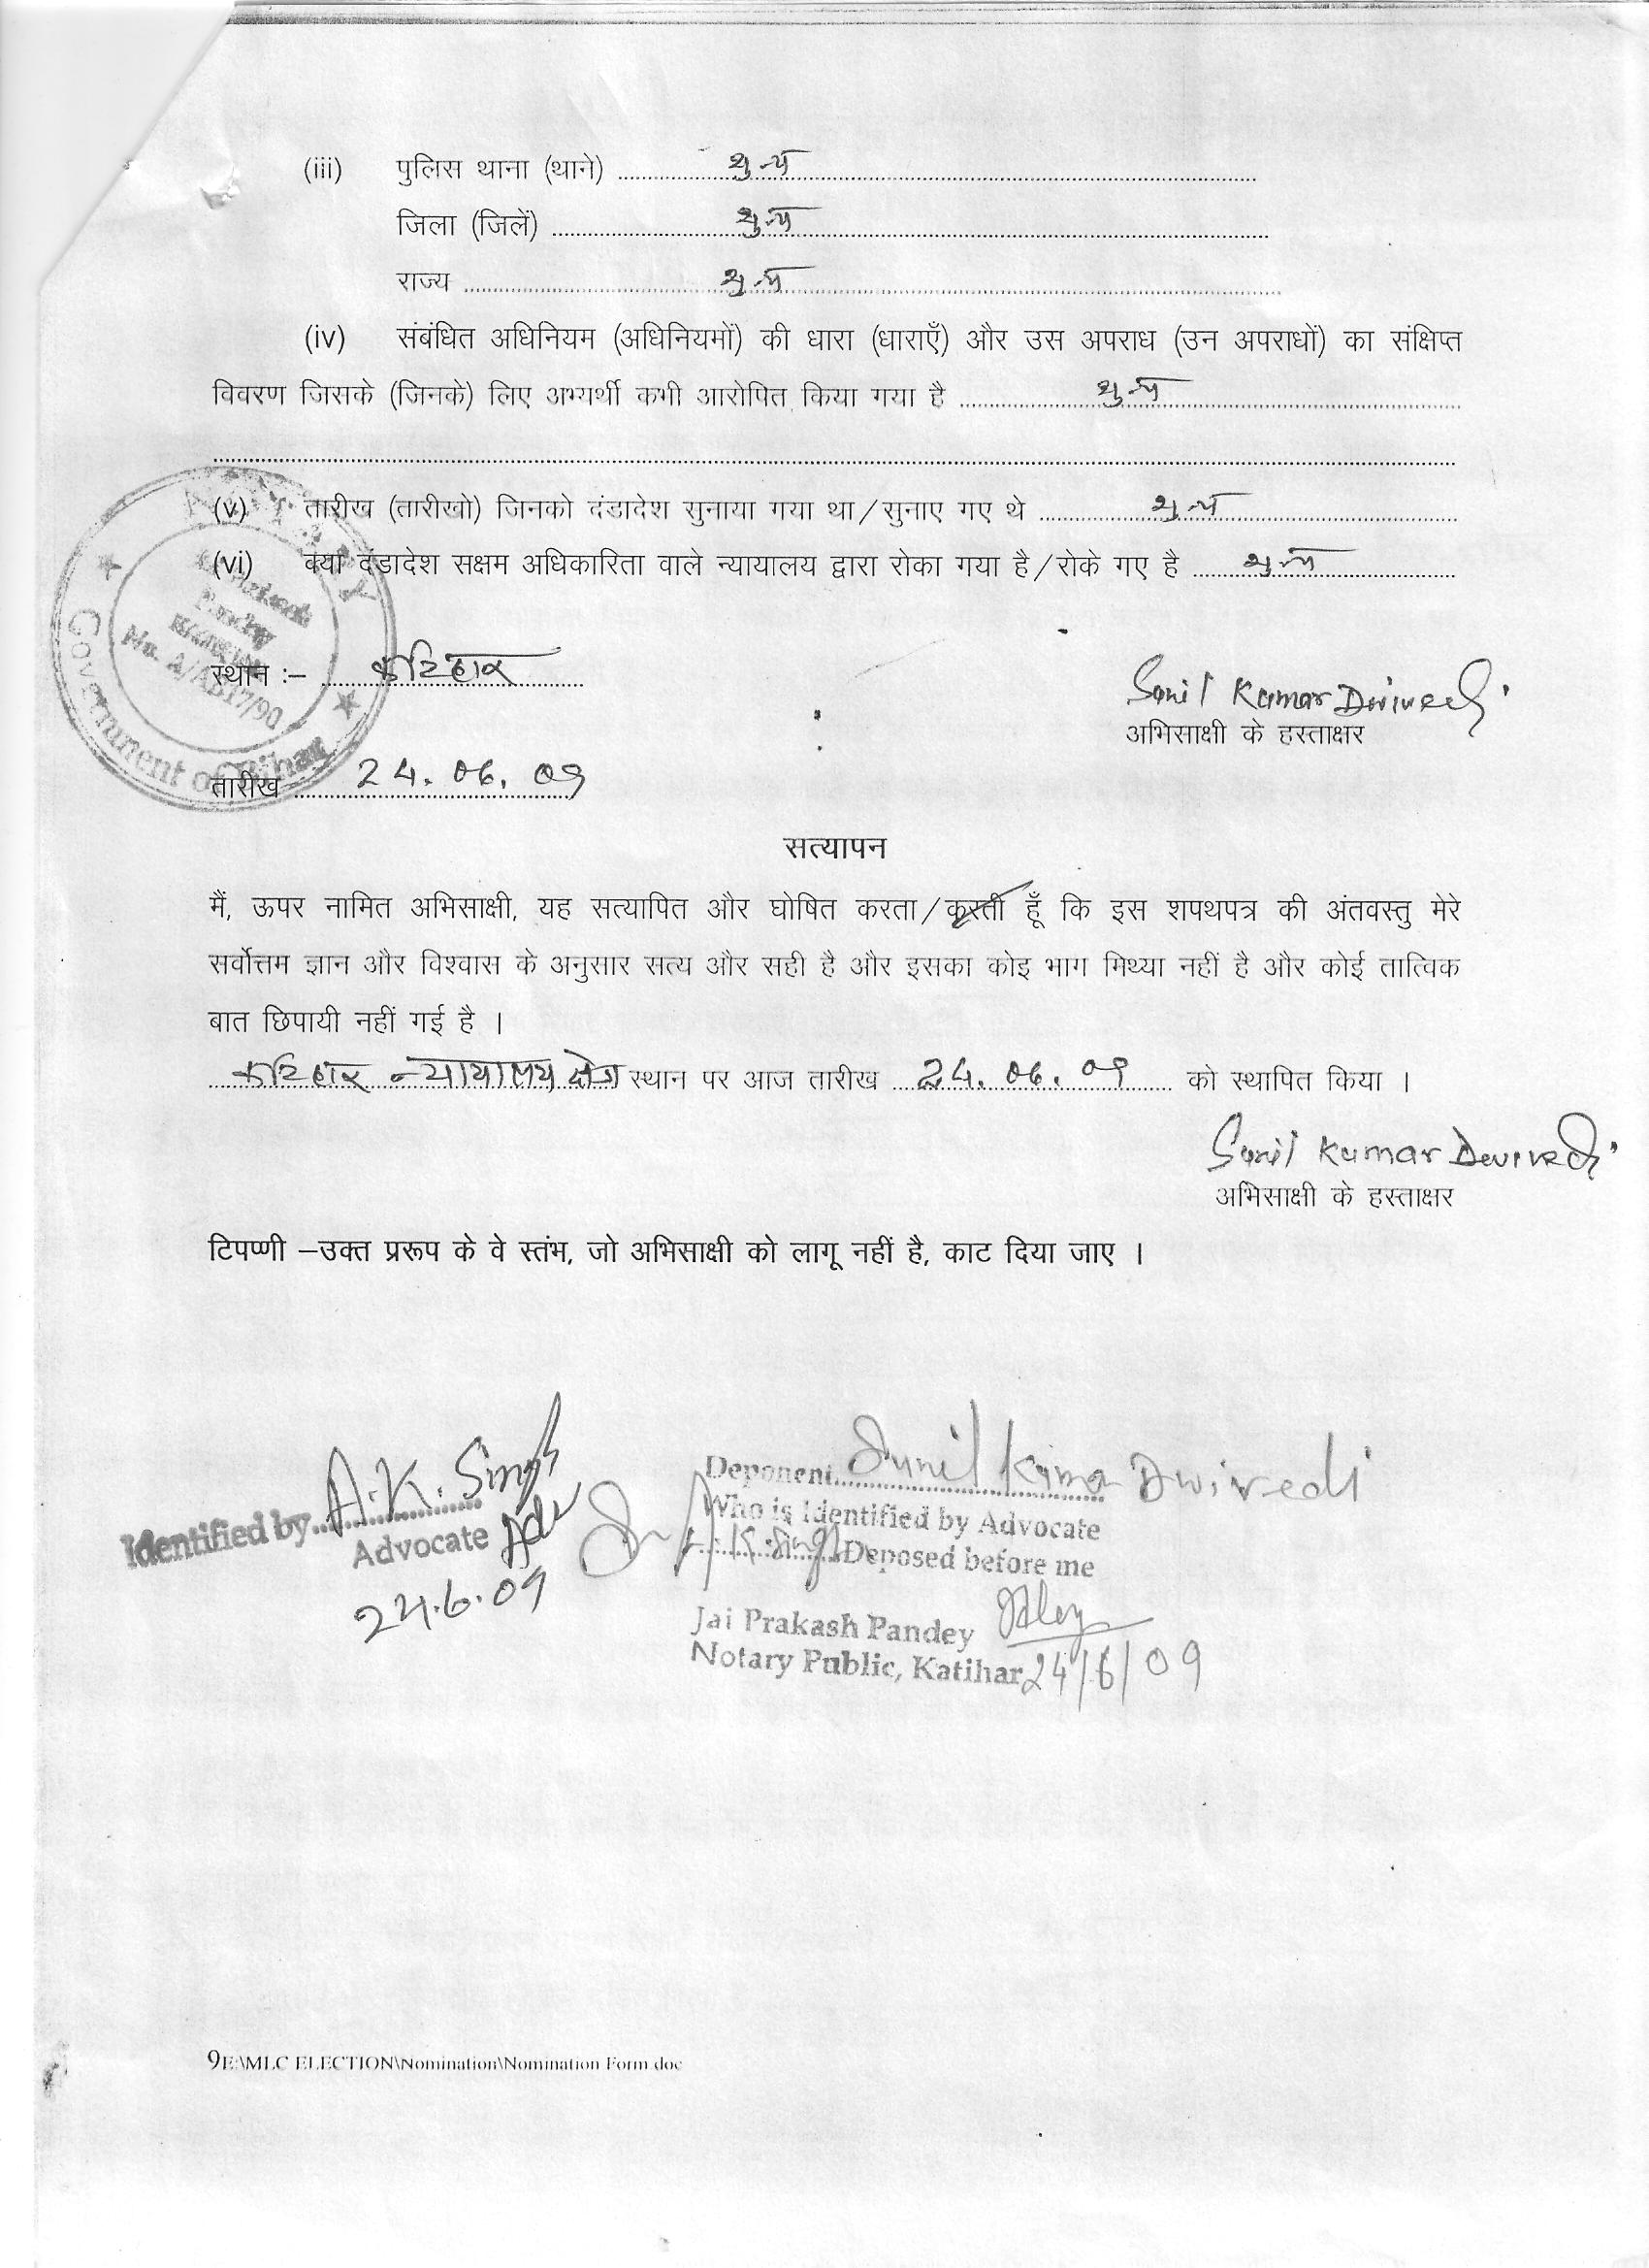 (iii) पुलिस थाना (थाने) शुन्य
जिला (जिलें) शुन्य
राज्य शुन्य
(iv) संबंधित अधिनियम (अधिनियमों) की धारा (धाराएँ) और उस अपराध (उन अपराधों) का संक्षिप्त
विवरण जिसके (जिनके) लिए अभ्यर्थी कभी आरोपित किया गया है शुन्य
(v) तारीख (तारीखो) जिनको दंडादेश सुनाया गया था/सुनाए गए थे शुन्य
(vi) क्या दंडादेश सक्षम अधिकारिता वाले न्यायालय द्वारा रोका गया है/रोके गए है शुन्य
NOTARY
Pandey
No. A/AB17/90
Government of Bihar
स्थान :– कटिहार
Sunil Kumar Dwivedi
अभिसाक्षी के हस्ताक्षर
तारीख 24.06.09
सत्यापन
मैं, ऊपर नामित अभिसाक्षी, यह सत्यापित और घोषित करता/करती हूँ कि इस शपथपत्र की अंतवस्तु मेरे
सर्वोत्तम ज्ञान और विश्वास के अनुसार सत्य और सही है और इसका कोइ भाग मिथ्या नहीं है और कोई तात्विक
बात छिपायी नहीं गई है ।
कटिहार न्यायालय क्षेत्र स्थान पर आज तारीख 24.06.09 को स्थापित किया ।
Sunil Kumar Dwivedi
अभिसाक्षी के हस्ताक्षर
टिपप्णी –उक्त प्ररूप के वे स्तंभ, जो अभिसाक्षी को लागू नहीं है, काट दिया जाए ।
Identified by A.K. Singh
Advocate Adv
24.6.09
Deponent Sunil Kumar Dwivedi
Who is Identified by Advocate
Sri A.K. Singh Deposed before me
Jai Prakash Pandey
Notary Public, Katihar 24/6/09
9E:\MLC ELECTION\Nomination\Nomination Form.doc